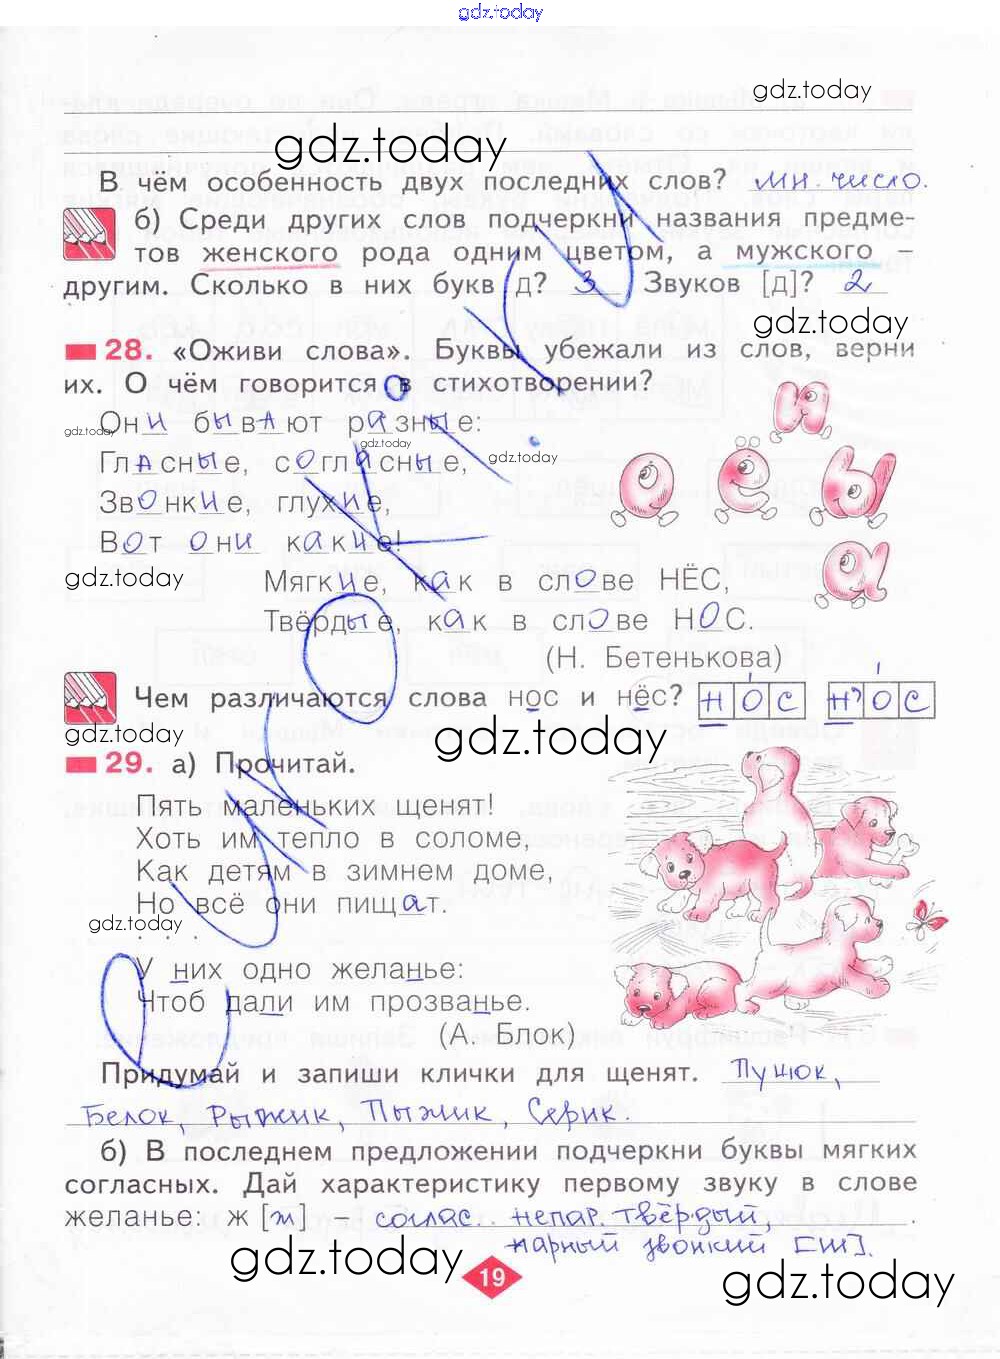 gdz.today
gdz.today
gdz.today
В чём особенность двух последних слов? мн. число.
б) Среди других слов подчеркни названия предме-
тов женского рода одним цветом, а мужского –
другим. Сколько в них букв д? 3 Звуков [д]? 2
gdz.today
28. «Оживи слова». Буквы убежали из слов, верни
их. О чём говорится в стихотворении?
Они бывают разные:
gdz.today
gdz.today
gdz.today
Гласные, согласные,
Звонкие, глухие,
Вот они какие!
gdz.today
Мягкие, как в слове НЁС,
Твёрдые, как в слове НОС.
(Н. Бетенькова)
и о е ы а
Чем различаются слова нос и нёс? н о с н' о с
gdz.today
gdz.today
29. а) Прочитай.
Пять маленьких щенят!
Хоть им тепло в соломе,
Как детям в зимнем доме,
Но всё они пищат.
gdz.today
. . . .
У них одно желанье:
Чтоб дали им прозванье.
(А. Блок)
Придумай и запиши клички для щенят. Пушок,
Белок, Рыжик, Пыжик, Серик.
б) В последнем предложении подчеркни буквы мягких
согласных. Дай характеристику первому звуку в слове
желанье: ж [ж] – соглас. непар. твёрдый,
парный звонкий [ш].
gdz.today
19
gdz.today